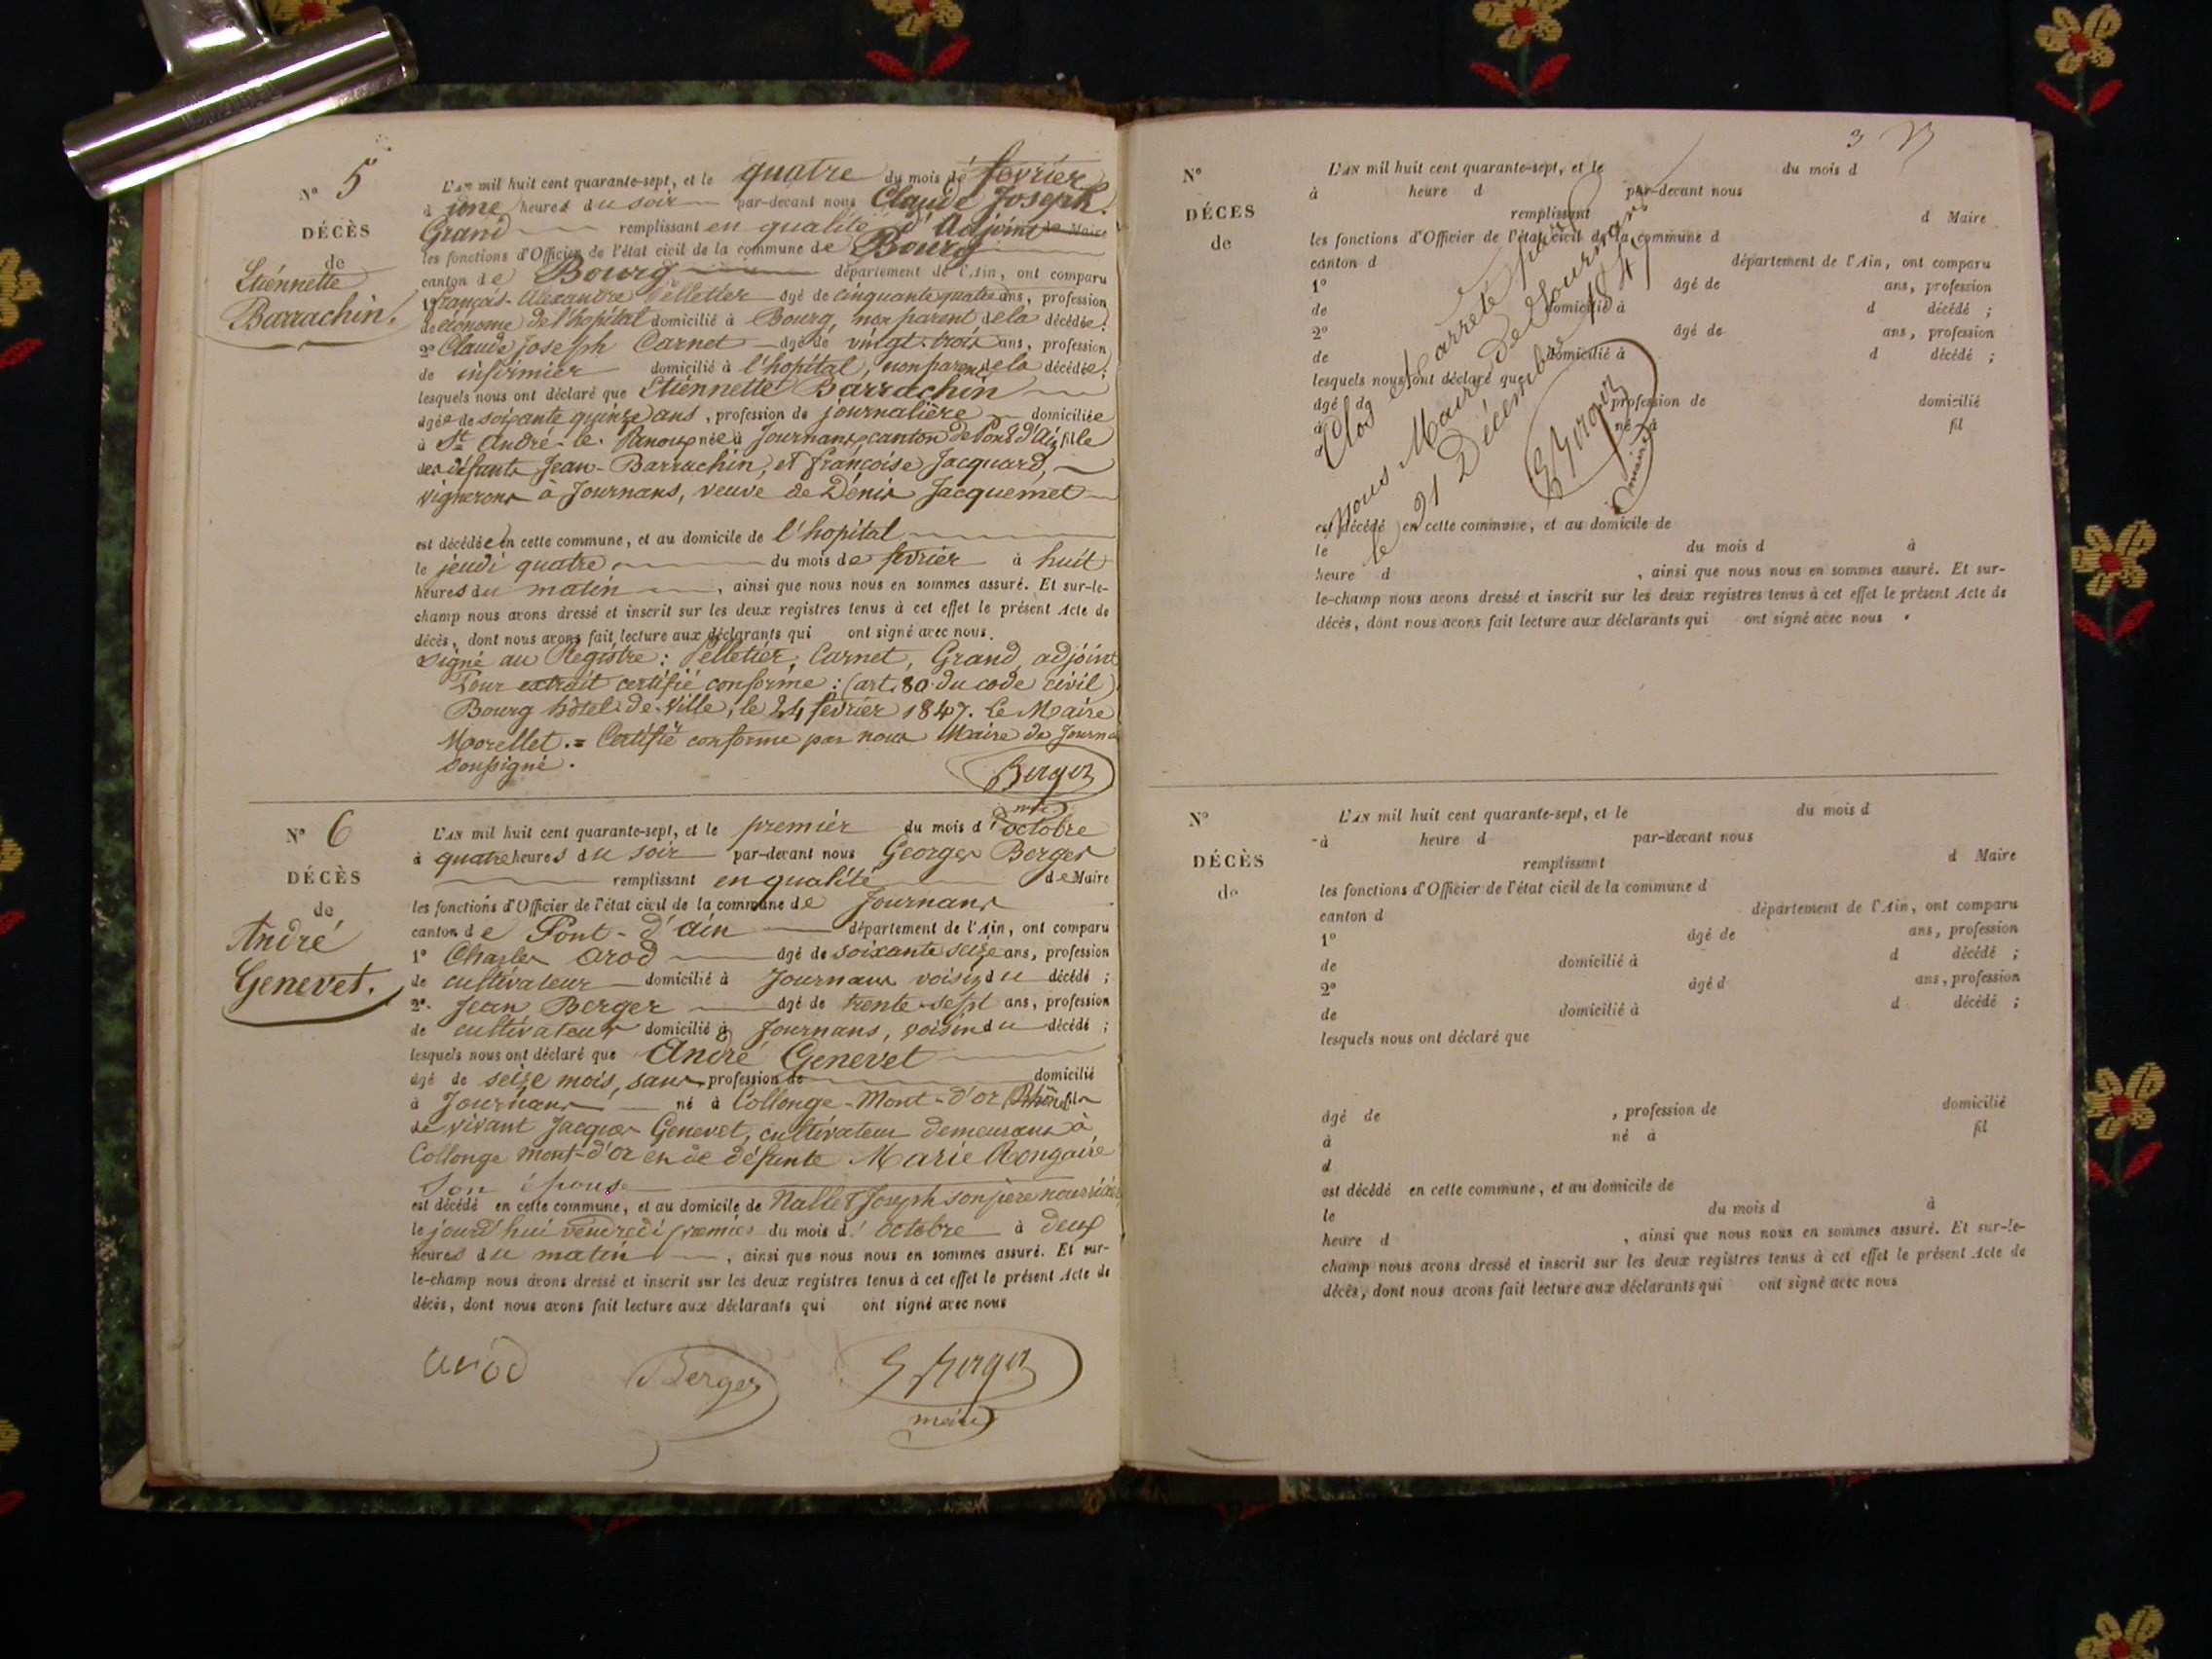 N° 5
DÉCÈS
de
Etiénnette
Barrachin.
L'AN mil huit cent quarante-sept, et le quatre du mois de février
à une heures du soir par-devant nous Claude Joseph
Grand remplissant en qualité d'Adjoint de Maire
les fonctions d'Officier de l'état civil de la commune de Bourg
canton de Bourg département de l'Ain, ont comparu
1° françois-Alexandre Pelletier âgé de cinquante quatre ans, profession
de économe de l'hopital domicilié à Bourg, non parent de la décédée;
2° Claude Joseph Carnet âgé de vingt-trois ans, profession
de infirmier domicilié à l'hopital, non parent de la décédée;
lesquels nous ont déclaré que Etiennette Barrachin
âgée de soixante quinze ans, profession de journalière domiciliée
à St André-le-Panoux née à Journans canton de Pont d'Ain fille
des défunts Jean-Barrachin, et françoise Jacquard,
vignerons à Journans, veuve de Dénis Jacquemet
est décédée en cette commune, et au domicile de l'hopital
le jeudi quatre du mois de février à huit
heures du matin, ainsi que nous nous en sommes assuré. Et sur-le-
champ nous avons dressé et inscrit sur les deux registres tenus à cet effet le présent Acte de
décès, dont nous avons fait lecture aux déclarants qui ont signé avec nous.
signé au Registre: Pelletier, Carnet, Grand, adjoint
Pour extrait certifié conforme: (art. 80 du code civil)
Bourg hôtel-de-Ville, le 24 février 1847. Le Maire
Morellet. = Certifié conforme par nous Maire de Journa
soussigné.
Berger
N° 6
DÉCÈS
de
André
Genevet.
L'AN mil huit cent quarante-sept, et le premier du mois d'octobre
à quatre heures du soir par-devant nous Georges Berger
remplissant en qualité de Maire
les fonctions d'Officier de l'état civil de la commune de Journans
canton de Pont-d'ain département de l'Ain, ont comparu
1° Charles Arod âgé de soixante seize ans, profession
de cultivateur domicilié à Journans voisin du décédé;
2° Jean Berger âgé de trente-sept ans, profession
de cultivateur domicilié à Journans, voisin du décédé;
lesquels nous ont déclaré que André Genevet
âgé de seize mois, sans profession de domicilié
à Journans né à Collonge-Mont-d'or (Rhône) fils
de vivant Jacques Genevet, cultivateur demeurant à
Collonge mont-d'or et de défunte Marie
son épouse
est décédé en cette commune, et au domicile de Nallet Joseph son père nourricier
le jourd'hui vendredi premier du mois d'octobre à deux
heures du matin, ainsi que nous nous en sommes assuré. Et sur-
le-champ nous avons dressé et inscrit sur les deux registres tenus à cet effet le présent Acte de
décès, dont nous avons fait lecture aux déclarants qui ont signé avec nous
arod Berger G Berger
maire
3
N° L'AN mil huit cent quarante-sept, et le du mois d
à heure d par-devant nous
DÉCES remplissant d Maire
de les fonctions d'Officier de l'état civil de la commune d
canton d département de l'Ain, ont comparu
1° âgé de ans, profession
de domicilié à d décédé;
2° âgé de ans, profession
de domicilié à d décédé;
lesquels nous ont déclaré que
âgé de profession de domicilié
à né à fil
d
Clos et arrêté par
nous Maire de Journans
le 31 Décembre 1847
G Berger
maire
est décédé en cette commune, et au domicile de
le du mois d à
heure d, ainsi que nous nous en sommes assuré. Et sur-
le-champ nous avons dressé et inscrit sur les deux registres tenus à cet effet le présent Acte de
décès, dont nous avons fait lecture aux déclarants qui ont signé avec nous.
N° L'AN mil huit cent quarante-sept, et le du mois d
à heure d par-devant nous
DÉCÈS remplissant d Maire
de les fonctions d'Officier de l'état civil de la commune d
canton d département de l'Ain, ont comparu
1° âgé de ans, profession
de domicilié à d décédé;
2° âgé d ans, profession
de domicilié à d décédé;
lesquels nous ont déclaré que
âgé de, profession de domicilié
à né à fil
d
est décédé en cette commune, et au domicile de
le du mois d à
heure d, ainsi que nous nous en sommes assuré. Et sur-le-
champ nous avons dressé et inscrit sur les deux registres tenus à cet effet le présent Acte de
décès, dont nous avons fait lecture aux déclarants qui ont signé avec nous